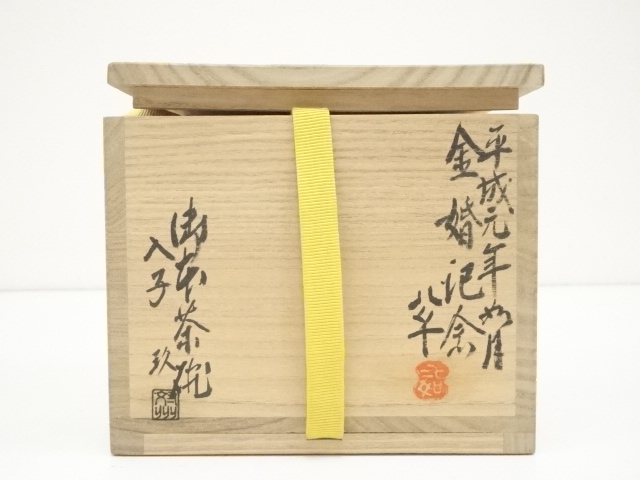 平成元年如月
金婚記念
八千
御本茶碗
入子
玖